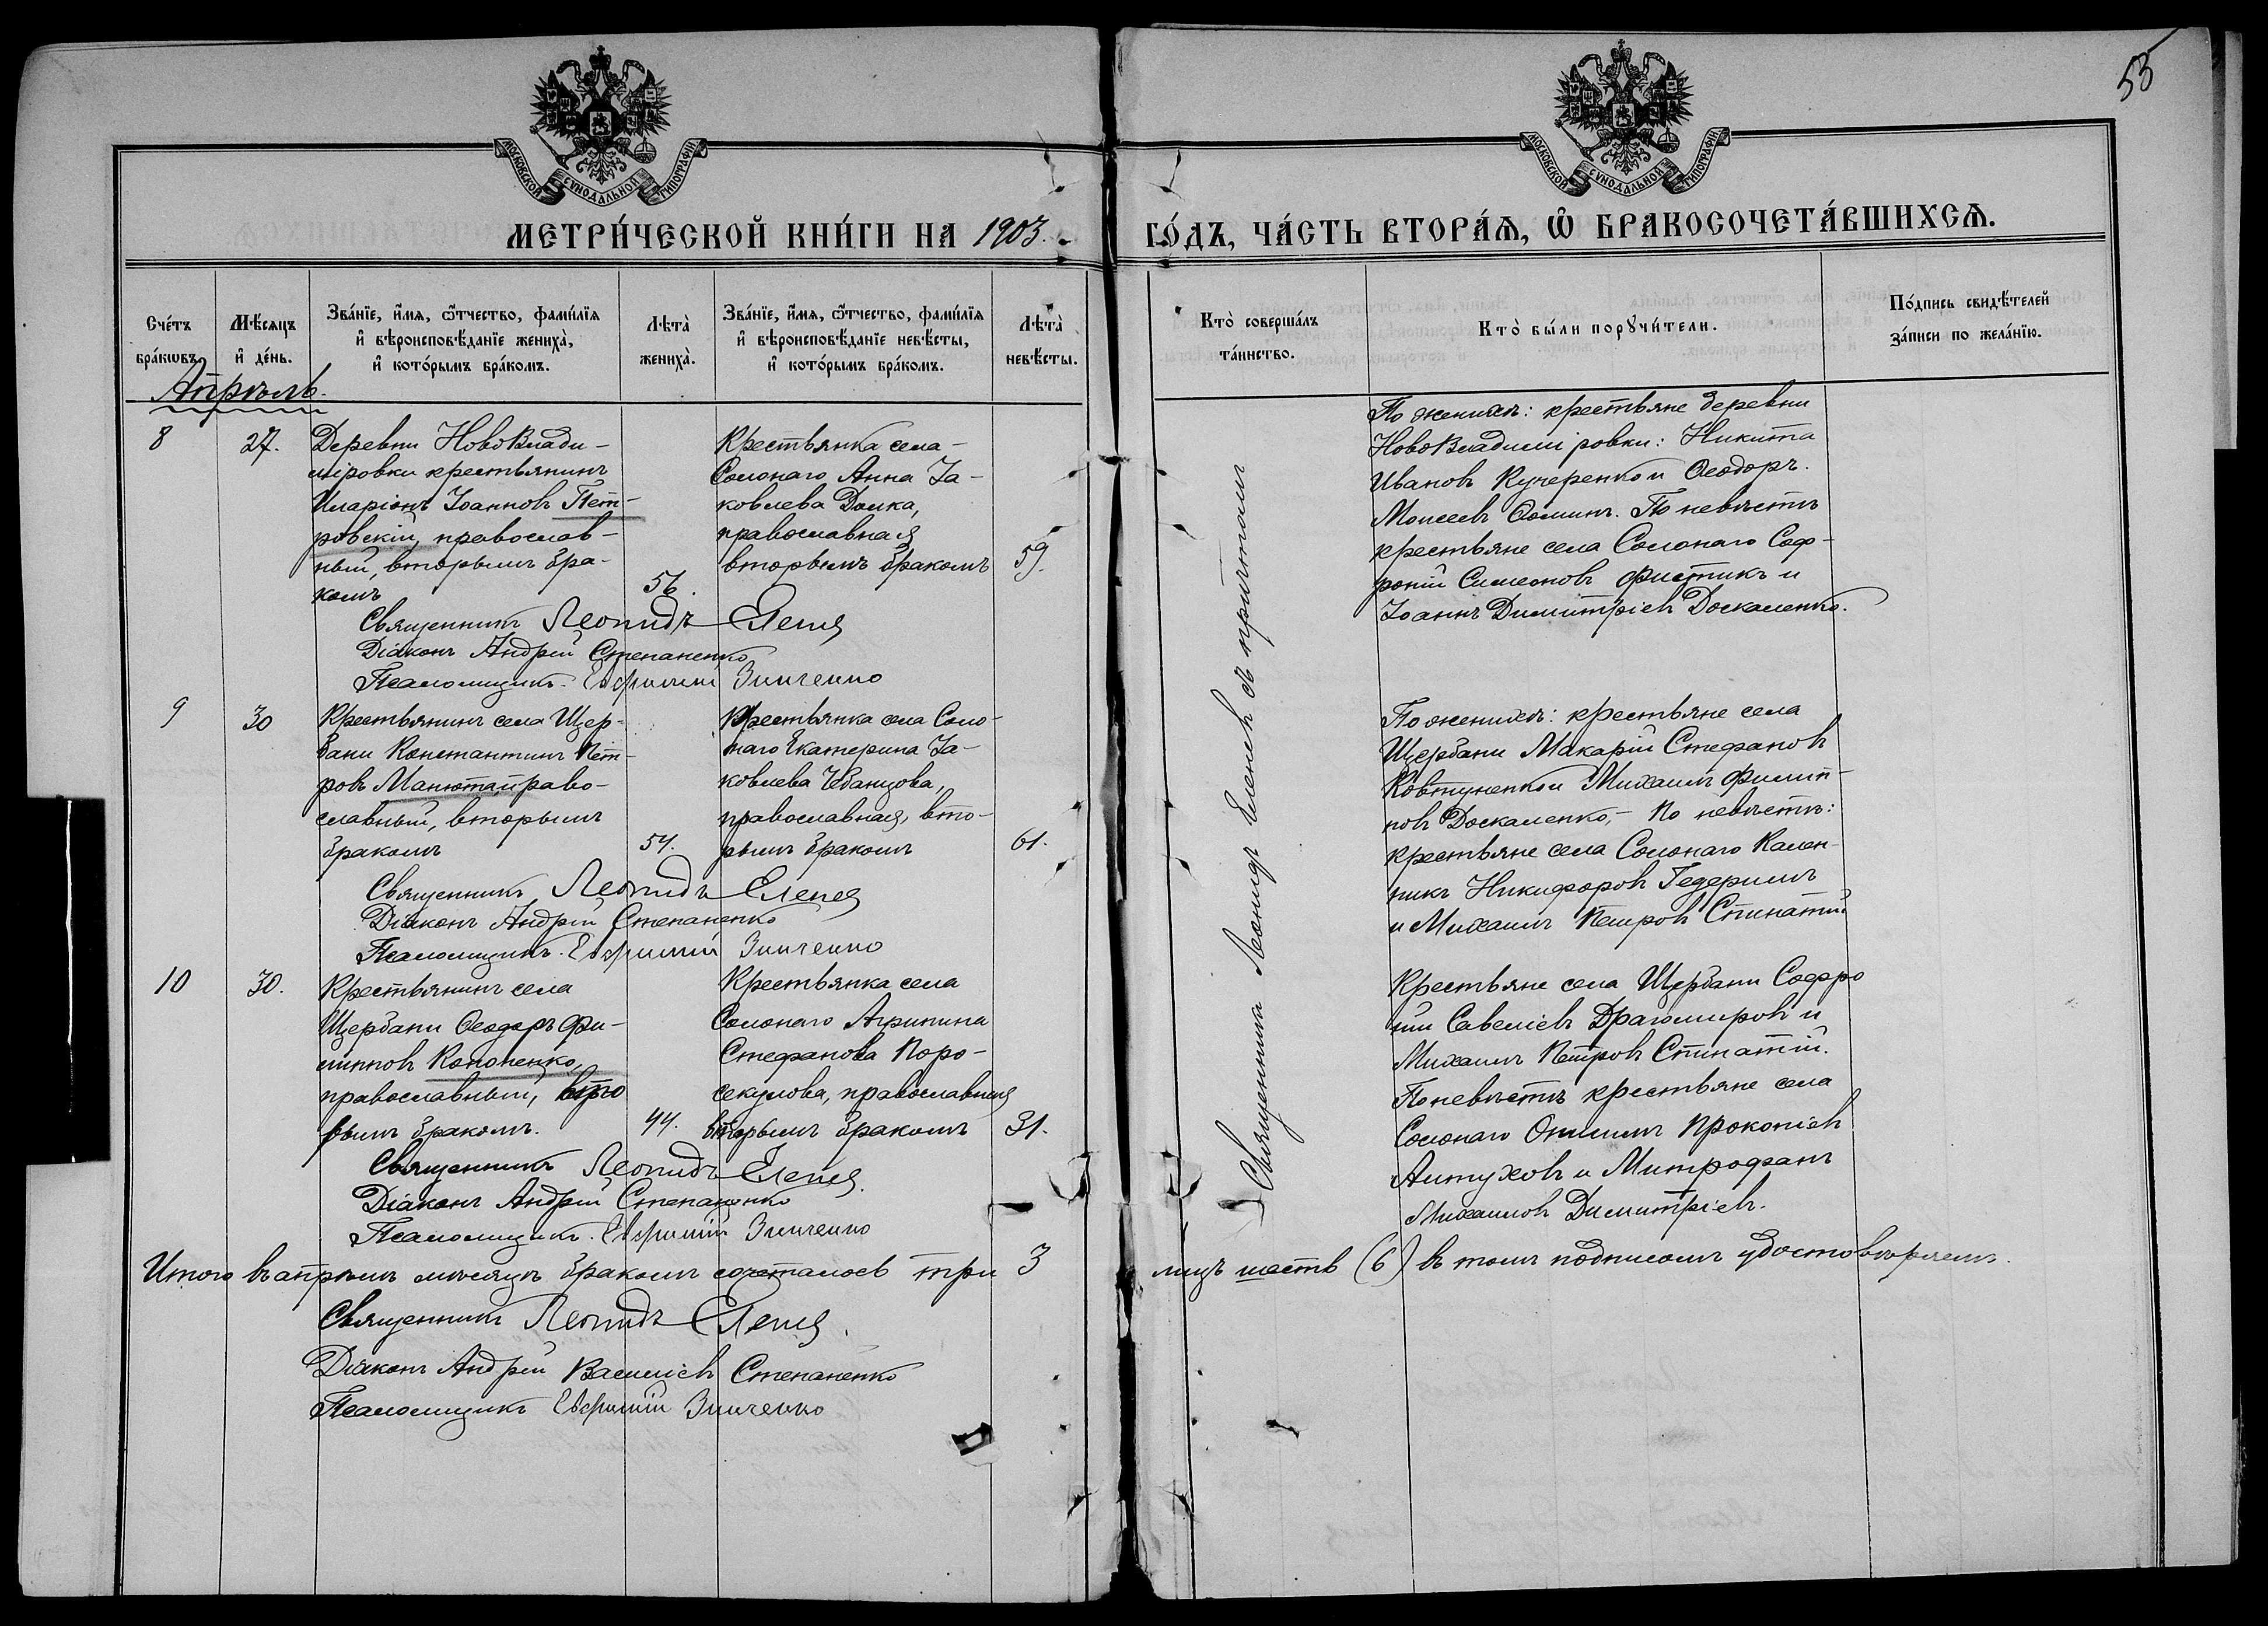 53
МОСКОВСКОЙ СУНОДАЛЬНОЙ ТИПОГРАФІИ
МОСКОВСКОЙ СУНОДАЛЬНОЙ ТИПОГРАФІИ
МЕТРИ́ЧЕСКОЙ КНИ́ГИ НА 1903. ГО́ДЪ, ЧА́СТЬ ВТОРА́Ѧ, Ѽ БРАКОСОЧЕТА́ВШИХСѦ.
Сче́тъ
бра́кωвъ.
Мѣ́сяцъ
и҆ де́нь.
Зва́нїе, и҆́мѧ, ѻ҆́тчество, фами́лїѧ
и҆ вѣроисповѣ́данїе жениха̀,
и҆ кото́рымъ бра́комъ.
Лѣта̀
жениха̀.
Зва́нїе, и҆́мѧ, ѻ҆́тчество, фами́лїѧ
и҆ вѣроисповѣ́данїе невѣ́сты,
и҆ кото́рымъ бра́комъ.
Лѣта̀
невѣ́сты.
Кто̀ соверша́лъ
та́инство.
Кто̀ бы́ли порꙋчи́тели.
По́дпись свидѣ́телей
за́писи по жела́нїю.
Апрѣль.
8
27.
Деревни НовоВлади-
міровки крестьянинъ
Иларіонъ Іоанновъ Пет-
ровскій, православ-
ный, вторымъ бра-
комъ
56.
Крестьянка села
Солонаго Анна Іа-
ковлева Долка,
православная
вторымъ бракомъ
59.
По женихѣ: крестьяне деревни
НовоВладиміровки: Никита
Ивановъ Кучеренко и Ѳеодоръ
Моисеевъ Ѳоминъ. По невѣстѣ
крестьяне села Солонаго Соф-
роній Симеоновъ Фистикъ и
Іоаннъ Димитріевъ Доскаленко.
Священникъ Леонидъ Еленев
Діаконъ Андрей Степаненко
Псаломщикъ Евфимій Зинченко
9
30
Крестьянинъ села Щер-
бани Константинъ Пет-
ровъ Манюта, право-
славный, вторымъ
бракомъ
54.
Крестьянка села Соло-
наго Екатерина Іа-
ковлева Чебанцова,
православная, вто-
рымъ бракомъ
61.
По женихѣ: крестьяне села
Щербани Макарій Стефановъ
Ковтуненко и Михаилъ Филип-
повъ Доскаленко,- По невѣстѣ:
крестьяне села Солонаго Кален-
никъ Никифоровъ Гедеримъ
и Михаилъ Петровъ Спинатій
Священникъ Леонидъ Еленев
Діаконъ Андрей Степаненко
Псаломщикъ Евфимій Зинченко
10
30.
Крестьянинъ села
Щербани Ѳеодоръ Фи-
липповъ Кононенко,
православный, вто
рымъ бракомъ.
44.
Крестьянка села
Солонаго Агрипина
Стефанова Поро-
секулова, православная
вторымъ бракомъ
31.
Крестьяне села Щербани Софро
ній Савеліевъ Драгомировъ и
Михаилъ Петровъ Спинатій.
По невѣстѣ крестьяне села
Солонаго Онисимъ Прокопіевъ
Алтуховъ и Митрофанъ
Михаиловъ Димитріевъ.
Священникъ Леонидъ Еленев
Діаконъ Андрей Степаненко
Псаломщикъ Евфимій Зинченко
Священникъ Леонидъ Еленевъ съ причтомъ
Итого въ апрѣлѣ мѣсяцѣ бракомъ сочеталось три 3 лицъ шесть (6) въ томъ подписомъ удостовѣряемъ.
Священникъ Леонидъ Еленев
Діаконъ Андрей Василіевъ Степаненко
Псаломщикъ Евфимій Зинченко